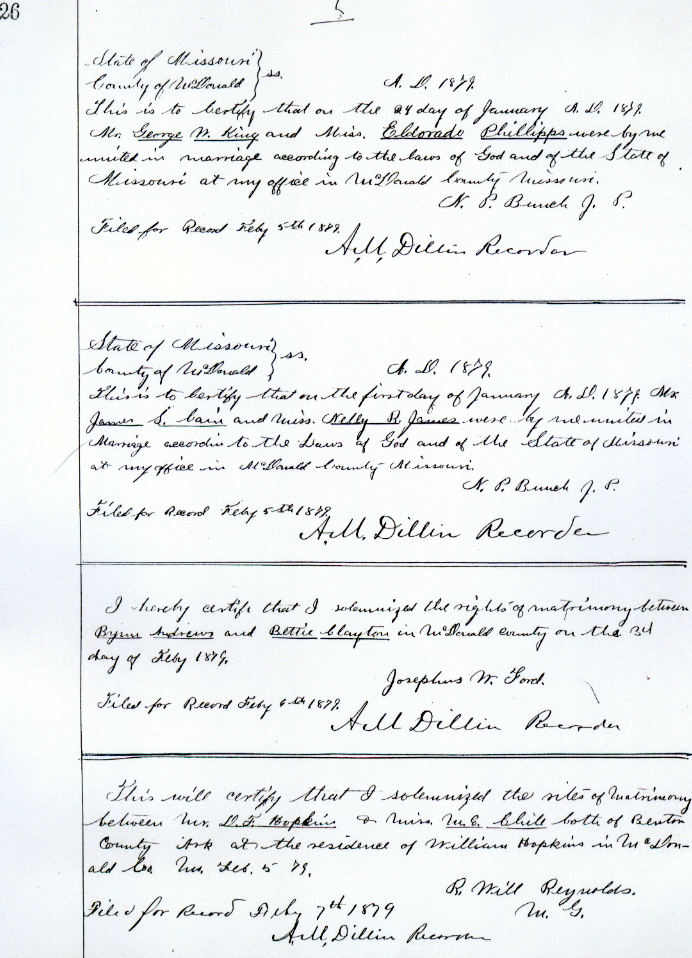 26
5
State of Missouri } ss.
County of McDonald A. D. 1879.
This is to Certify that on the 24 day of January A. D. 1879.
Mr. George W. King and Miss. Eldorado Phillipps were by me
united in marriage according to the laws of God and of the State of
Missouri at my office in McDonald County Missouri.
N. P. Bunch J. P.
Filed for Record Feby 5th 1879.
A. M. Dillin Recorder
State of Missouri } ss.
County of McDonald A. D. 1879.
This is to Certify that on the first day of January A. D. 1879 Mr.
James S. Cain and Miss. Nelly R. James were by me united in
Marriage accordin to the Laws of God and of the State of Missouri
at my office in McDonald County Missouri.
N. P. Bunch J. P.
Filed for Record Feby 5th 1879.
A. M. Dillin Recorder
I hereby certify that I solemnized the rights of matrimony between
Byrm Andrews and Bettie Clayton in McDonald County on the 3d
day of Feby 1879.
Josephus W. Ford.
Filed for Record Feby 6th 1879.
A M Dillin Recorder
This will certify that I solemnized the rites of Matrimony
between Mr. D. F. Hopkins & Miss. M. E. Chile both of Benton
County Ark at the residence of William Hopkins in McDon-
ald Co. Mo. Feb. 5 79.
R. Will Reynolds.
M. G.
Filed for Record Feby 7th 1879
A. M. Dillin Recorder